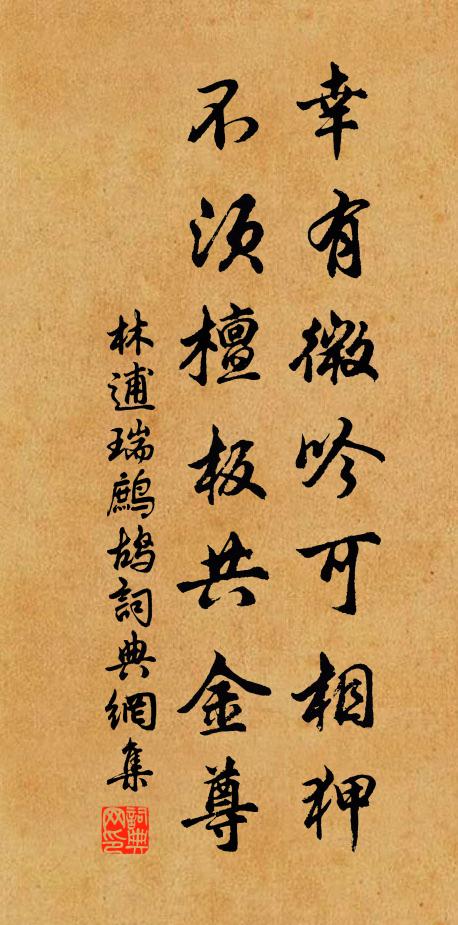 幸有微吟可相狎
不須檀板共金尊
林逋瑞鷓鴣詞典網集
詞典网印